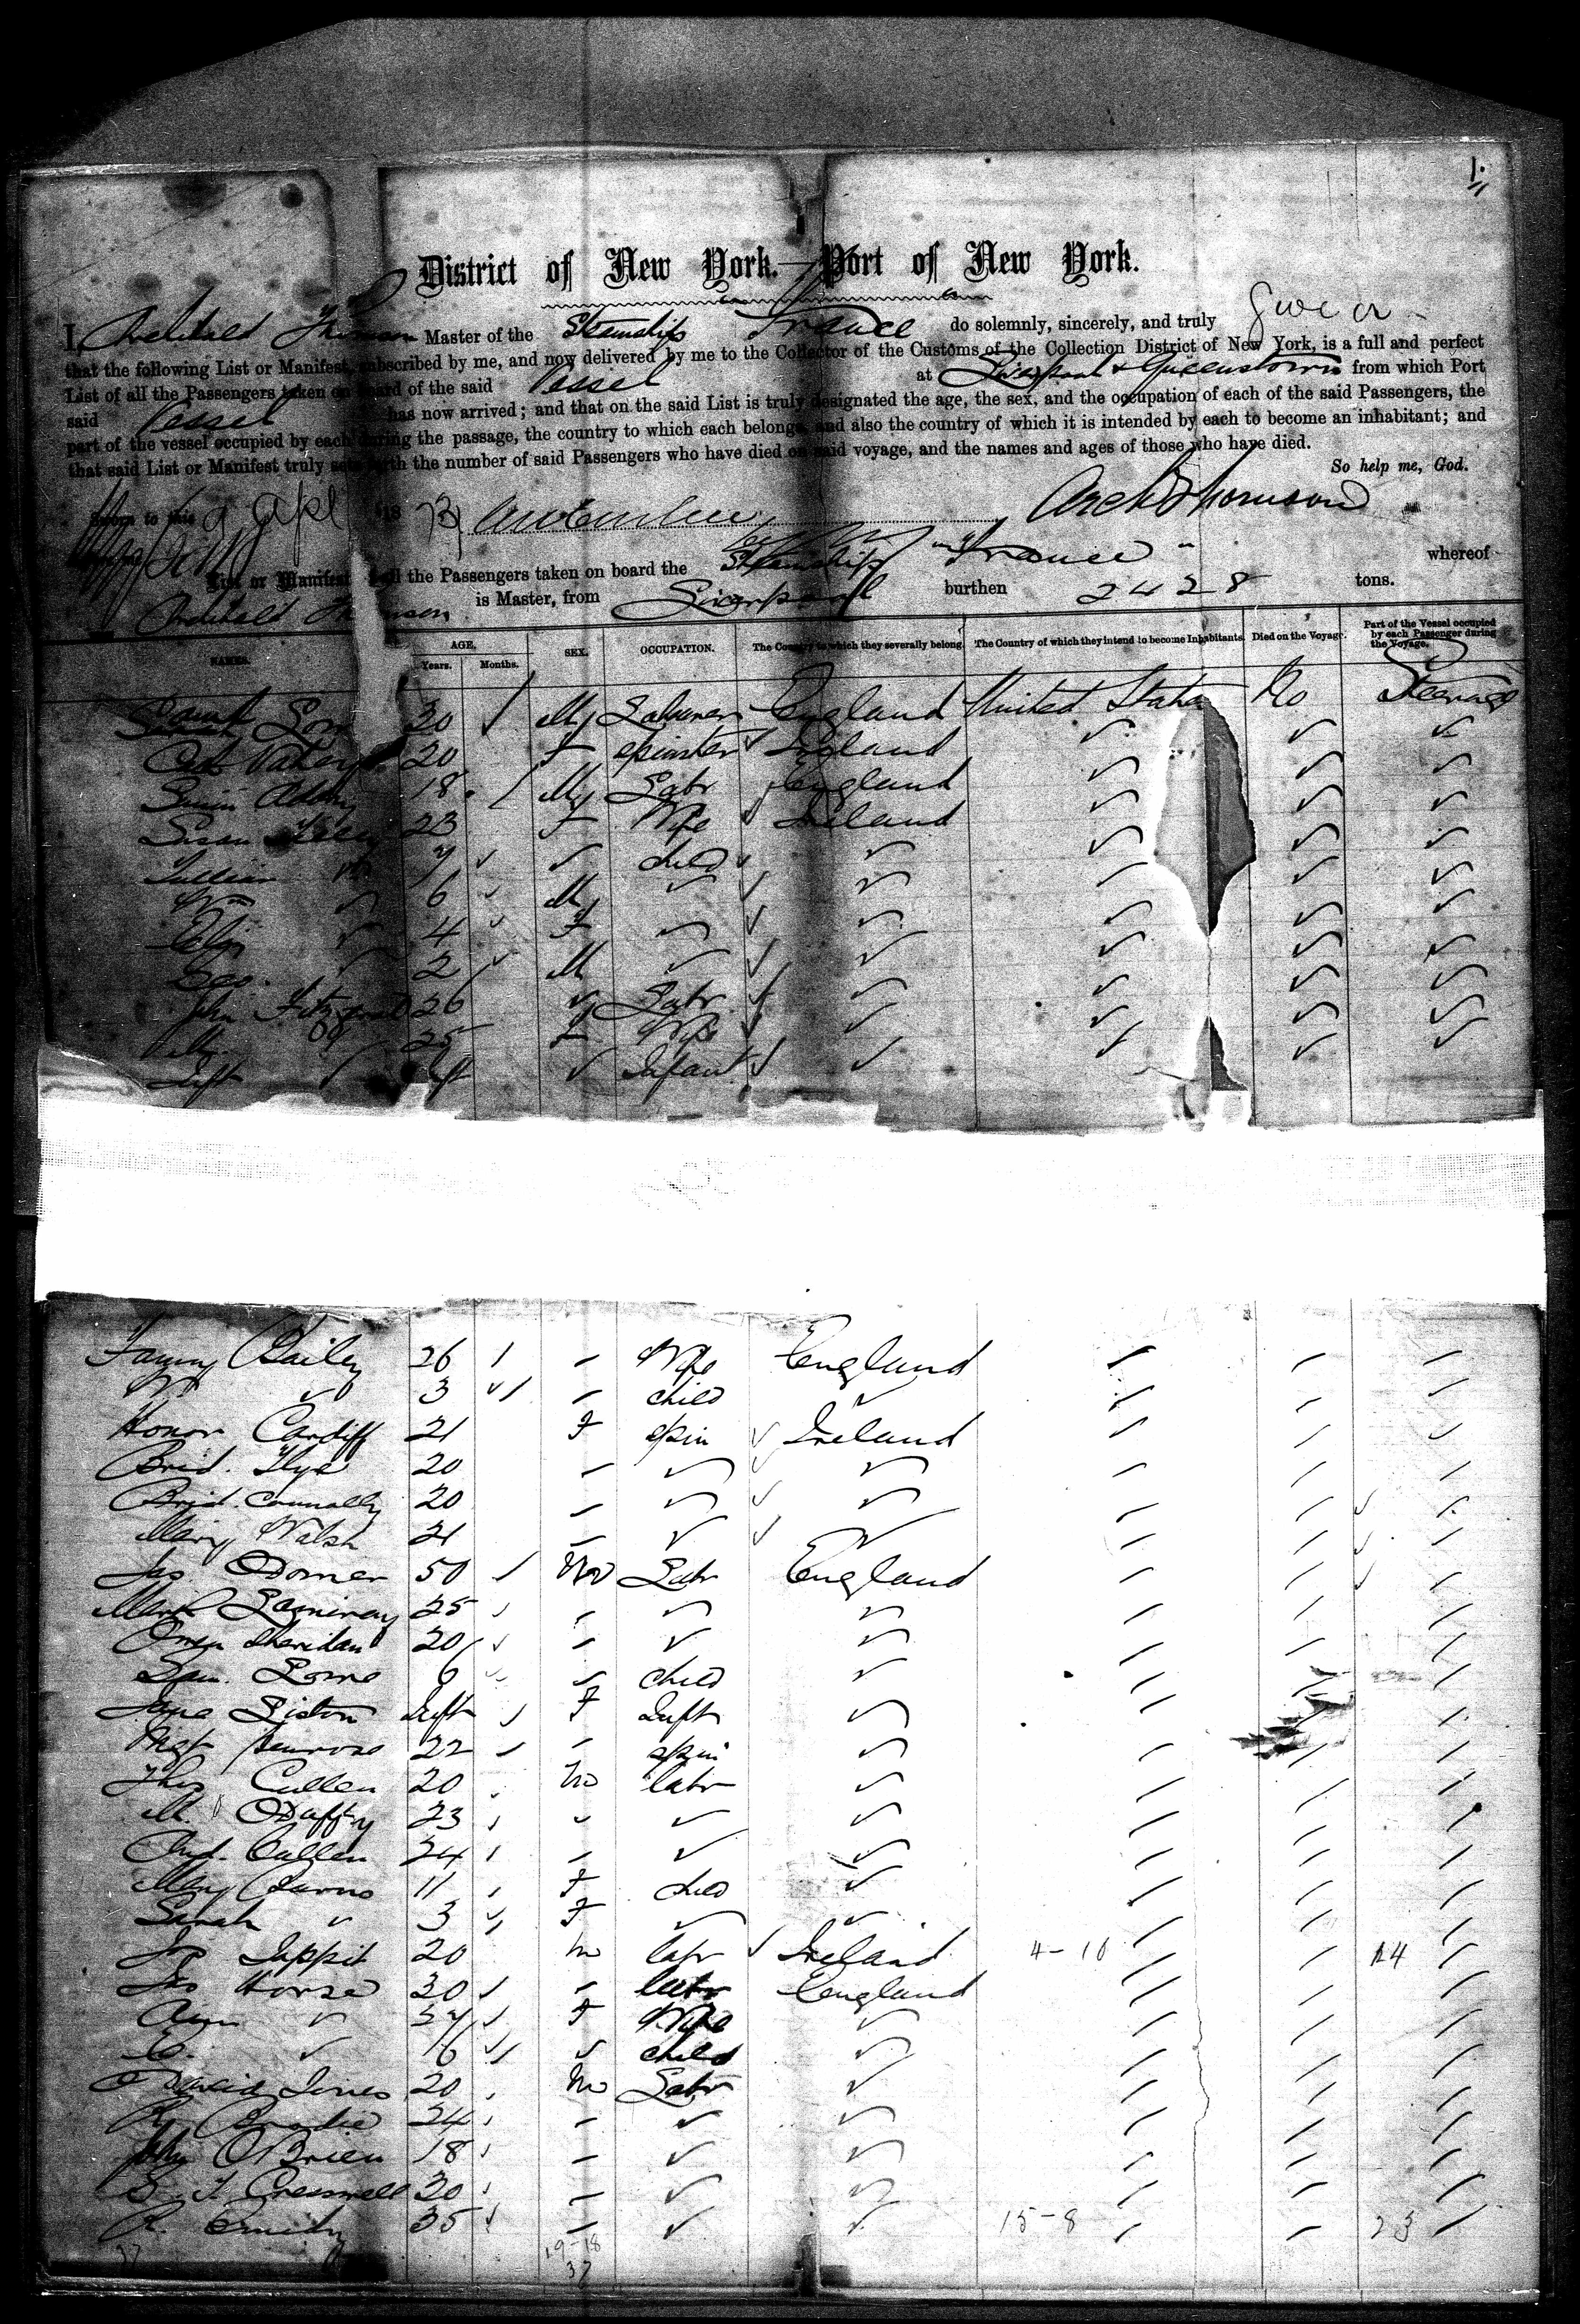 1.
District of New York.—Port of New York.
I, Archibald Thomson Master of the Steamship France do solemnly, sincerely, and truly swear
that the following List or Manifest, subscribed by me, and now delivered by me to the Collector of the Customs of the Collection District of New York, is a full and perfect
List of all the Passengers taken on board of the said Vessel at Liverpool & Queenstown from which Port
said Vessel has now arrived; and that on the said List is truly designated the age, the sex, and the occupation of each of the said Passengers, the
part of the vessel occupied by each during the passage, the country to which each belongs, and also the country of which it is intended by each to become an inhabitant; and
that said List or Manifest truly sets forth the number of said Passengers who have died on said voyage, and the names and ages of those who have died.
So help me, God.
Sworn to this 9 Apl 1873 Arch Thomson
List or Manifest of all the Passengers taken on board the Steamship "France" whereof
Archibald Thomson is Master, from Liverpool burthen 2428 tons.
NAMES. AGE. Years. Months. SEX. OCCUPATION. The Country to which they severally belong. The Country of which they intend to become Inhabitants. Died on the Voyage. Part of the Vessel occupied by each Passenger during the Voyage.
30 M Labourer England United States No Steerage
20 F spinster Ireland
18 M Labr England
Susan 23 F Wife Ireland
7 child
Wm 6 M
4 F
Geo. 2 M
John Fitzgerald 26 Labr
25 F Wife
Inft Inft Infant
Fanny Bailey 26 Wife England
Wm 3 child
Honor Cardiff 21 F spin Ireland
Brid. Flye 20
Brid. Connolly 20
Mary Walsh 21
Jas ODonner 50 M Labr England
25
Owen Sheridan 20
Sam. Lowe 6 child
Jane Liston Inft F Inft
Mgt Penrose 22 spin
Thos Cullen 20 M labr
M. ODuffy 23
And. Cullen 24
Mary Burns 11 F child
Sarah 3 F
Jos Tappit 20 M labr Ireland 4-10 14
Jas Horse 30 labr England
Ann 34 F Wife
6 child
David Jones 20 M Labr
R. Brodie 24
John OBrien 18
S. T. Cresswell 20
R. 35 15-8 23
37 19-18
37